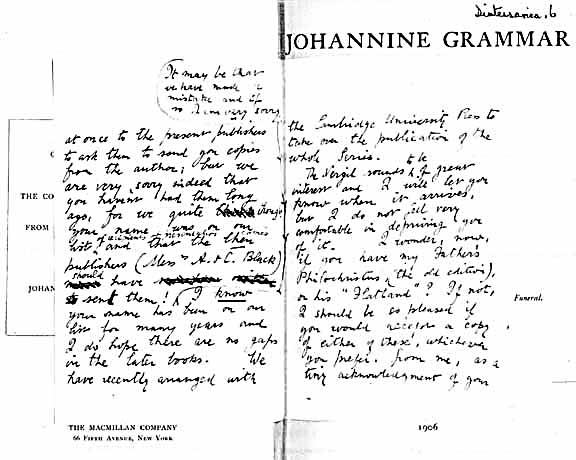 Diatessarica, 6
JOHANNINE GRAMMAR
It may be that
we have made a
mistake and if
so I am very sorry
at once to the present publishers
to ask them to send you copies
from the author; but we
are very sorry indeed that
you haven't had them long
ago, for we quite thought
your name was on our
list and that the then
publishers (Messrs A. & C. Black)
should have
sent them! I know
your name has been on our
lists for many years and
I do hope there are no gaps
in the later books. We
have recently arranged with
THE CO
FROM
JOHAN
THE MACMILLAN COMPANY
66 FIFTH AVENUE, NEW YORK
the Cambridge University Press to
take over the publication of the
whole Series.
The Vergil sounds to be of great
interest and I will let you
know when it arrives,
but I do not feel very
comfortable in depriving you
of it. I wonder, now,
if you have my Father's
Philochristus, (the old edition),
or his "Flatland"? If not,
I should be so pleased if
you would receive a copy
of either of these, whichever
you prefer, from me, as a
tiny acknowledgment of your
Funeral.
1906